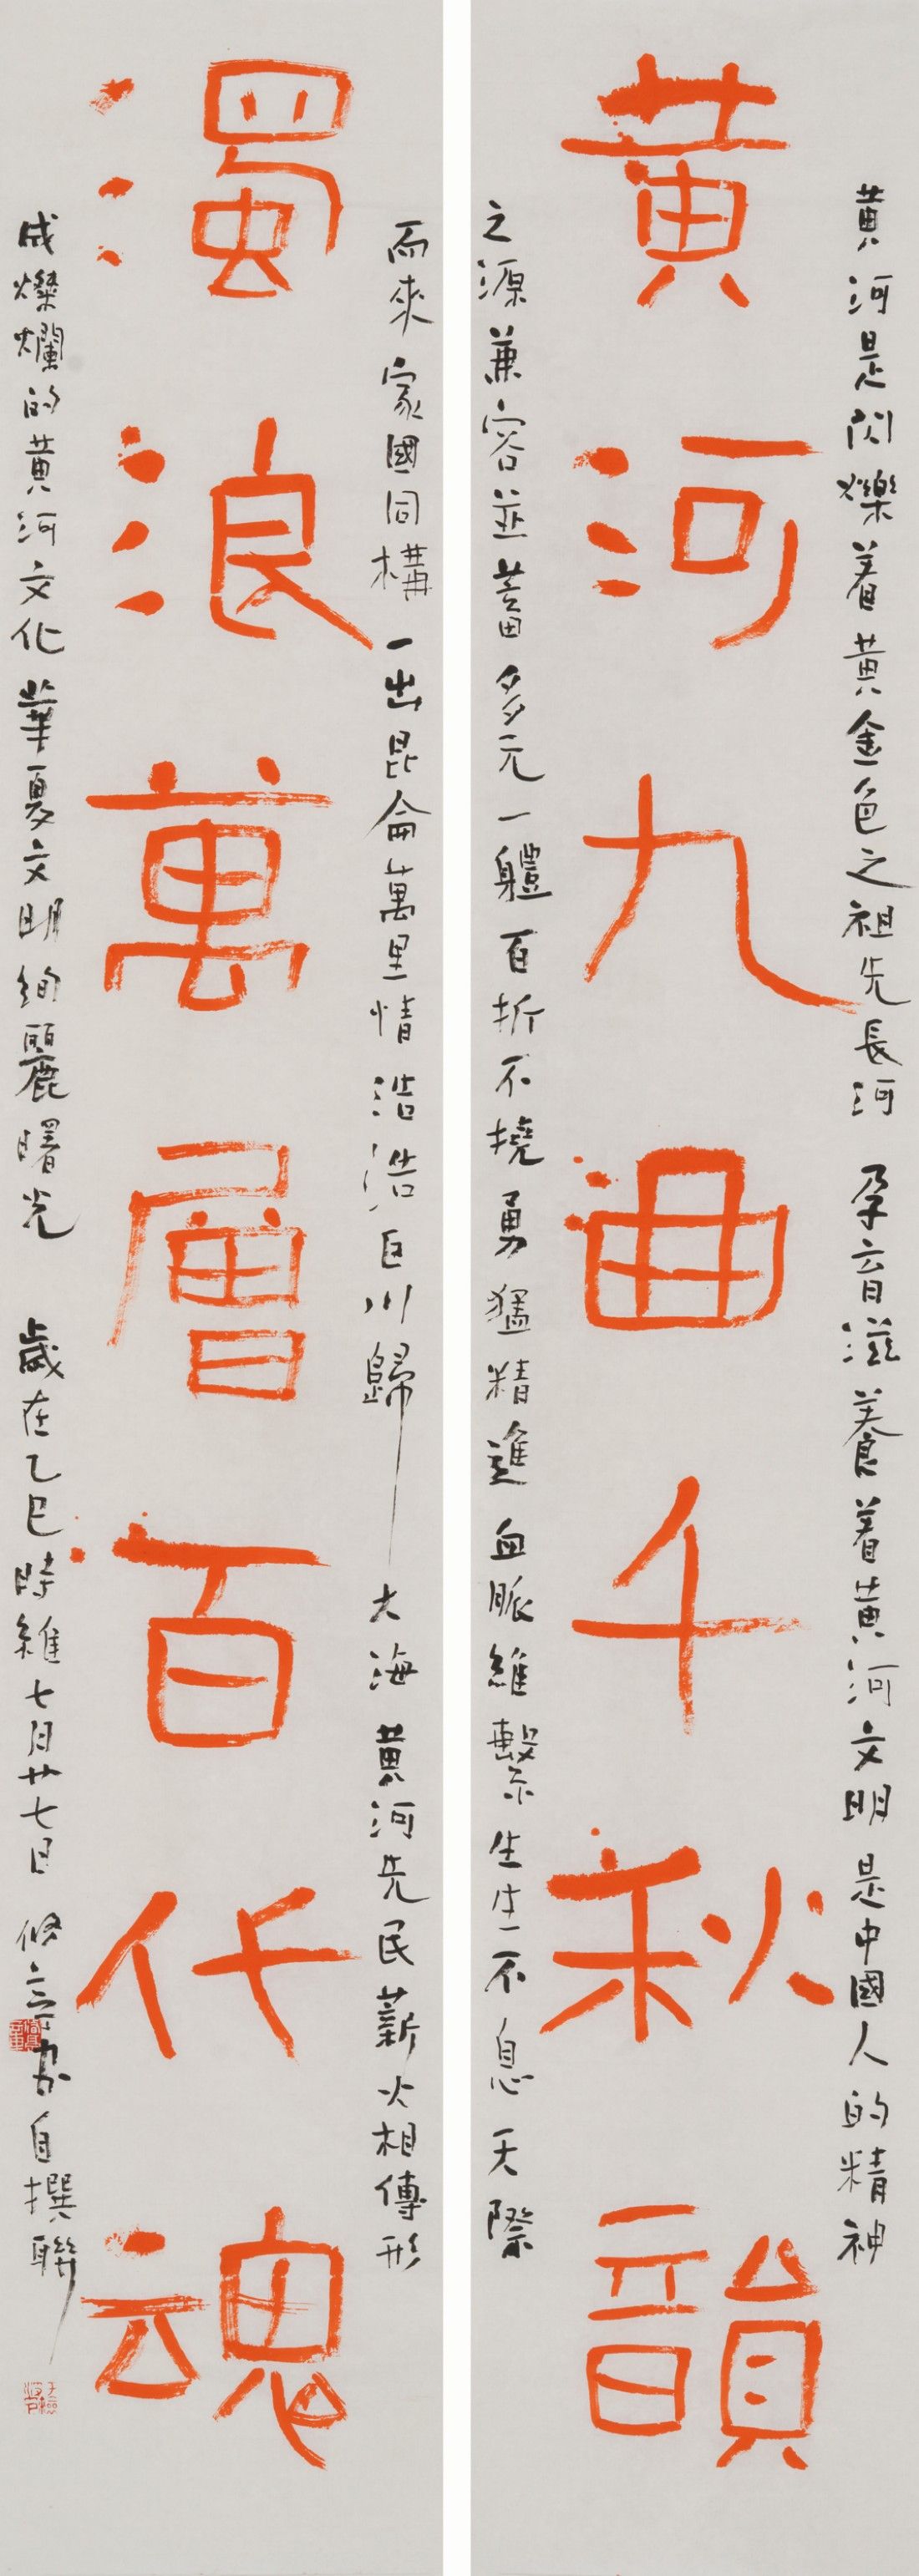 黃河九曲千秋韻
濁浪萬層百代魂
黃河是閃爍着黃金色之祖先長河 孕育滋養着黃河文明是中國人的精神
之源兼容並蓄多元一軆百折不撓勇猛精進血脈維繫生生不息天際
而來家國同構一出昆侖萬里情浩浩巨川歸大海黃河先民薪火相傳形
成燦爛的黃河文化華夏文明絢麗曙光 歲在乙巳時維七月廿七日 自撰聯